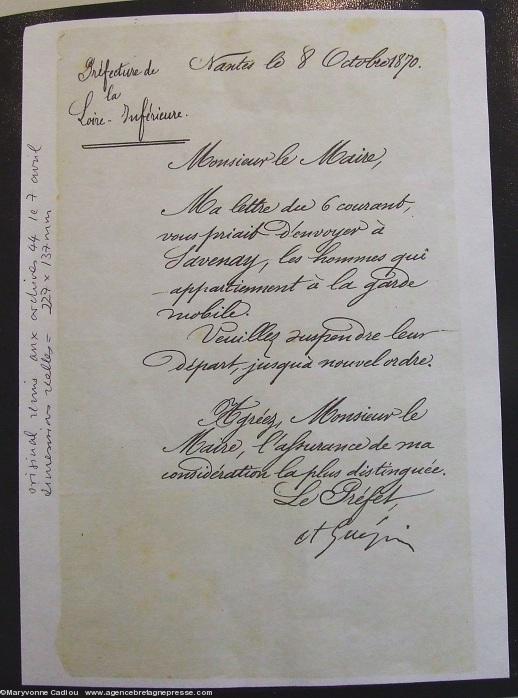 Préfecture de
la
Loire-Inférieure.
Nantes le 8 Octobre 1870.
Monsieur le Maire,
Ma lettre du 6 courant,
vous priait d'envoyer à
Savenay, les hommes qui
appartiennent à la garde
mobile.
Veuillez suspendre leur
départ, jusqu'à nouvel ordre.
Agréez, Monsieur le
Maire, l'assurance de ma
considération la plus distinguée.
Le Préfet,
Guépin
original remis aux archives 44 le 7 avril
dimensions réelles = 227 x 137 mm
©Maryvonne Cadiou _ www.agencebretagnepresse.com